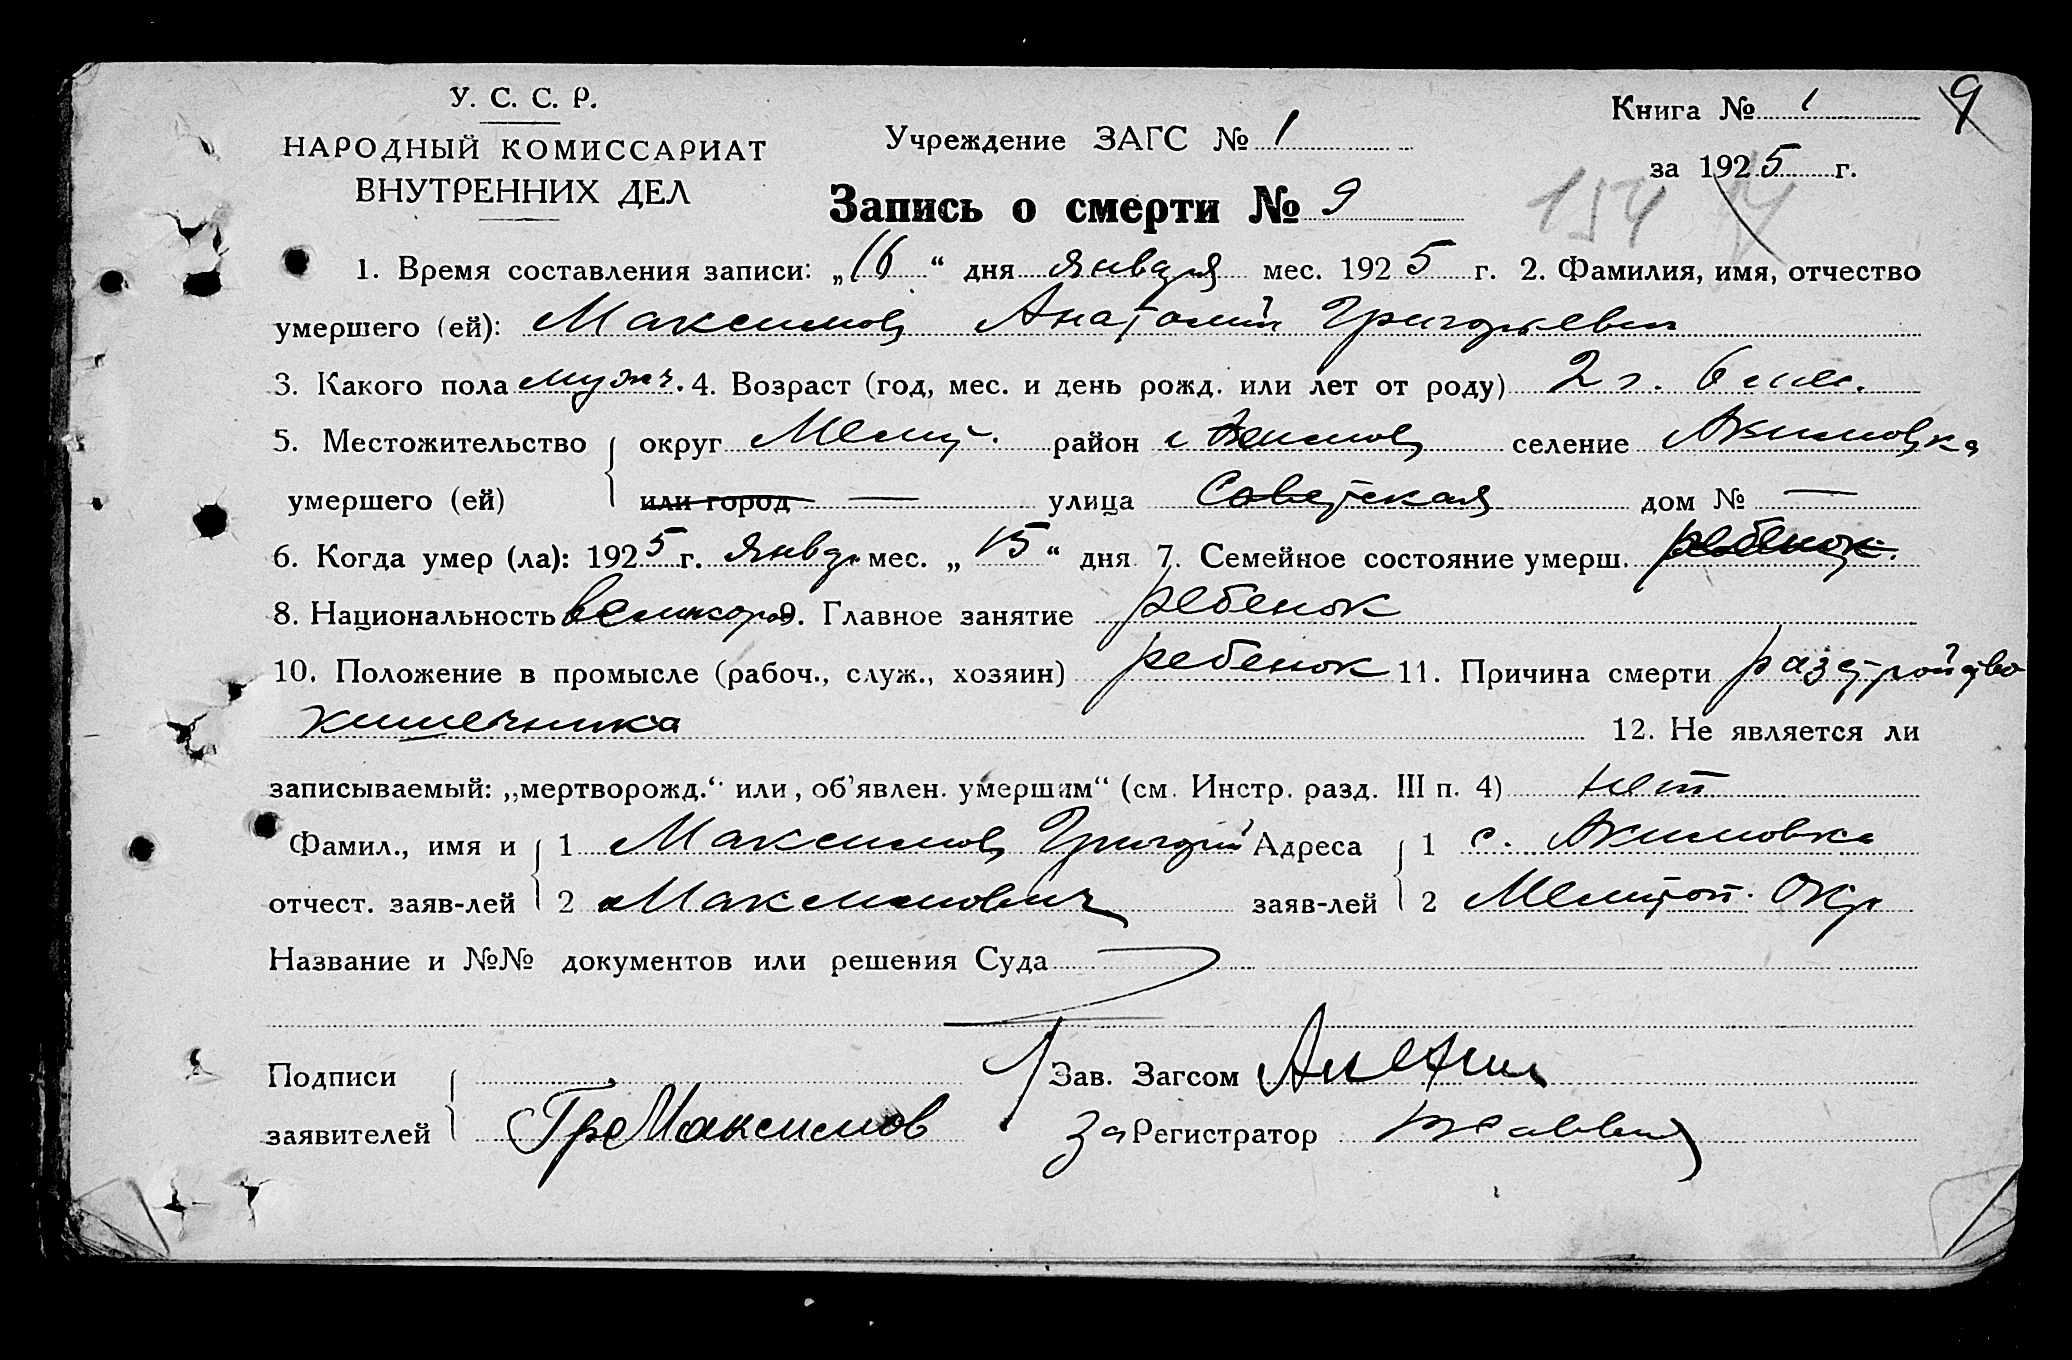 У. С. С. Р.
НАРОДНЫЙ КОМИССАРИАТ
ВНУТРЕННИХ ДЕЛ
Учреждение ЗАГС № 1
Книга № 1
9
за 1925 г.
Запись о смерти № 9
154
1. Время составления записи: „16“ дня января мес. 1925 г. 2. Фамилия, имя, отчество
умершего (ей): Максимов Анатолий Григорьевич
3. Какого пола мужч. 4. Возраст (год, мес. и день рожд. или лет от роду) 2 г. 6 мес.
5. Местожительство округ Мелит. район Акимов селение Акимовка
умершего (ей) или город — улица Советская дом № —
6. Когда умер (ла): 1925 г. январ мес. „15“ дня 7. Семейное состояние умерш. ребенок.
8. Национальность великорос 9. Главное занятие ребенок
10. Положение в промысле (рабоч., служ., хозяин) ребенок 11. Причина смерти разстройство
кишечника 12. Не является ли
записываемый: „мертворожд.“ или, об'явлен. умершим“ (см. Инстр. разд. III п. 4) нет
Фамил., имя и 1 Максимов Григорий Адреса 1 с. Акимовка
отчест. заяв-лей 2 Максимович заяв-лей 2 Мелитоп. Окр
Название и №№ документов или решения Суда
Подписи Зав. Загсом
заявителей Гр Максимов За Регистратор